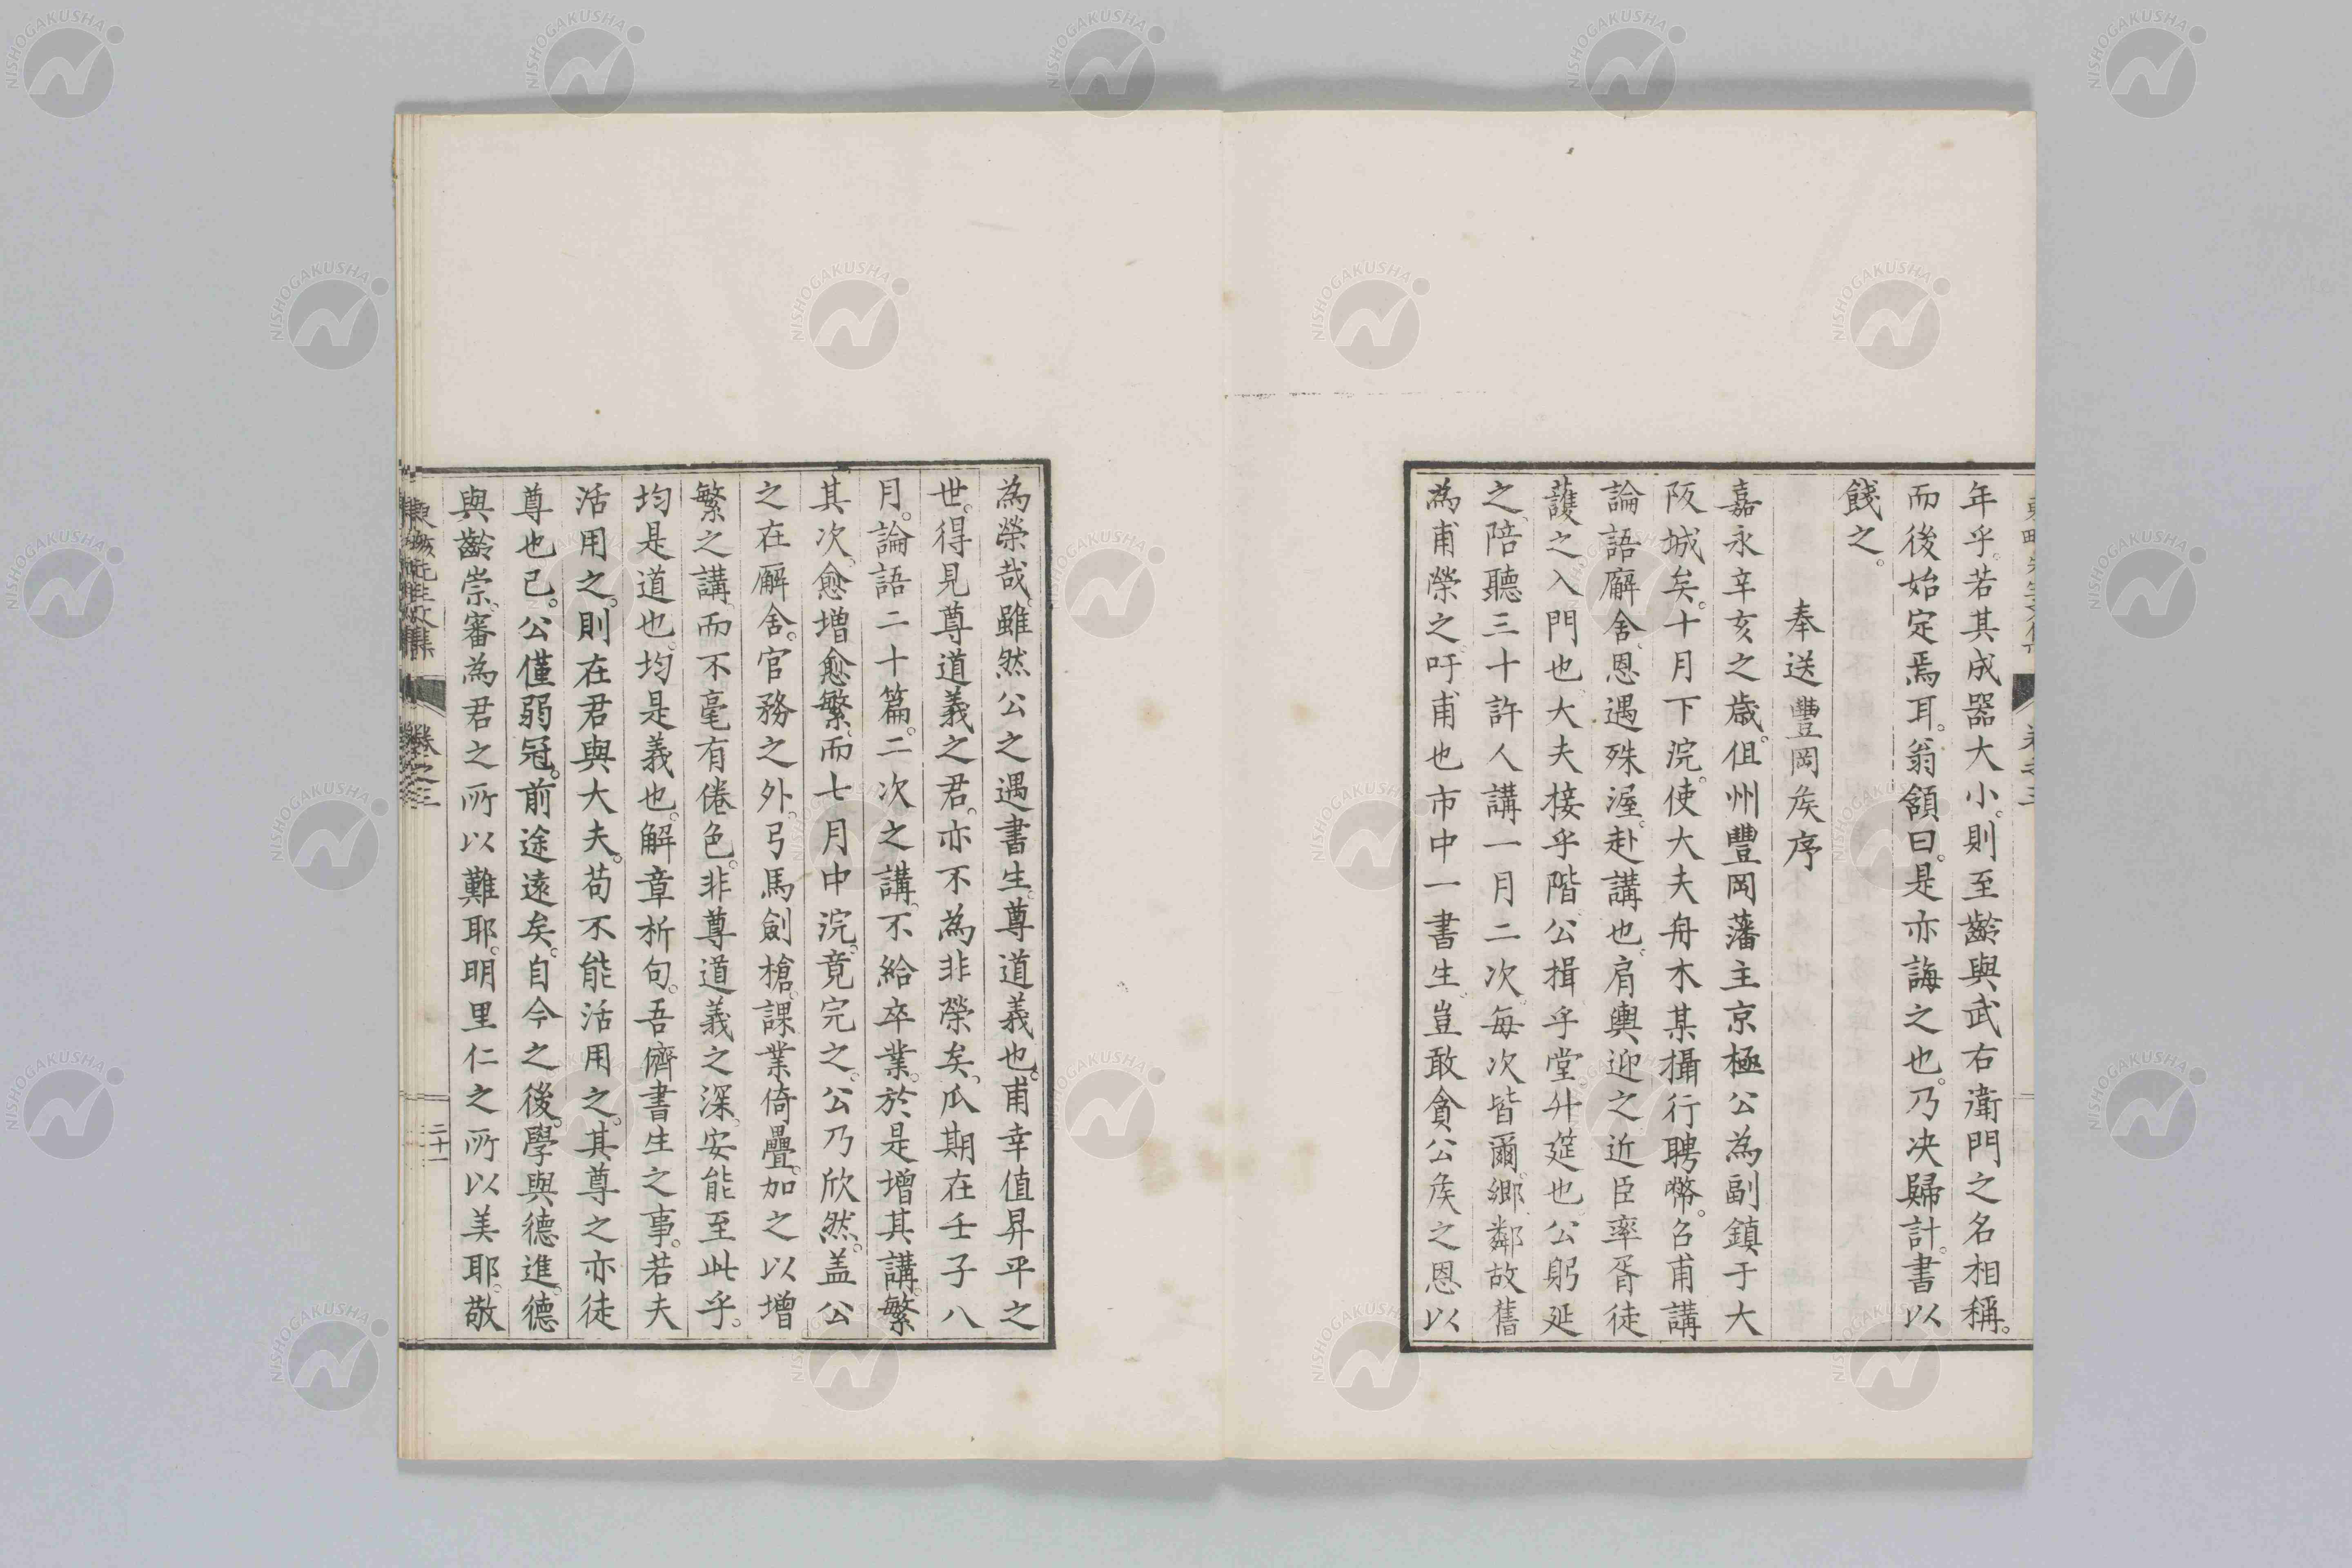 年乎。若其成器大小。則至齡與武右衛門之名相稱。
而後始定焉耳。翁額曰。是亦誨之也。乃决歸計。書以
餞之。
奉送豐岡矦序
嘉永辛亥之歲。伹州豐岡藩主京極公為副鎮于大
阪城矣。十月下浣。使大夫舟木某攝行聘幣。名甫講
論語廨舍。恩遇殊渥。赴講也。肩輿迎之近臣率胥徒
護之入門也。大夫接乎階。公揖乎堂升筵也。公躬延
之。陪聽三十許人講一月二次。每次皆爾。鄉鄰故舊
為甫榮之。吁甫也市中一書生。豈敢貪公矦之恩以
為榮哉。雖然公之遇書生。尊道義也。甫幸值昇平之
世。得見尊道義之君。亦不為非榮矣。瓜期在壬子八
月。論語二十篇。二次之講。不給卒業。於是增其講。繁
其次。愈增愈繁。而七月中浣。竟完之。公乃欣然。盖公
之在廨舍。官務之外。弓馬劍槍。課業倚疊。加之以增
繁之講。而不毫有倦色。非尊道義之深。安能至此乎。
均是道也。均是義也。解章析句。吾儕書生之事。若夫
活用之。則在君與大夫。苟不能活用之。其尊之亦徒
尊也已。公僅弱冠。前途遠矣。自今之後。學與德進。德
與齡崇。審為君之所以難耶。明里仁之所以美耶。敬
卷之三
二十一
NISHOGAKUSHA